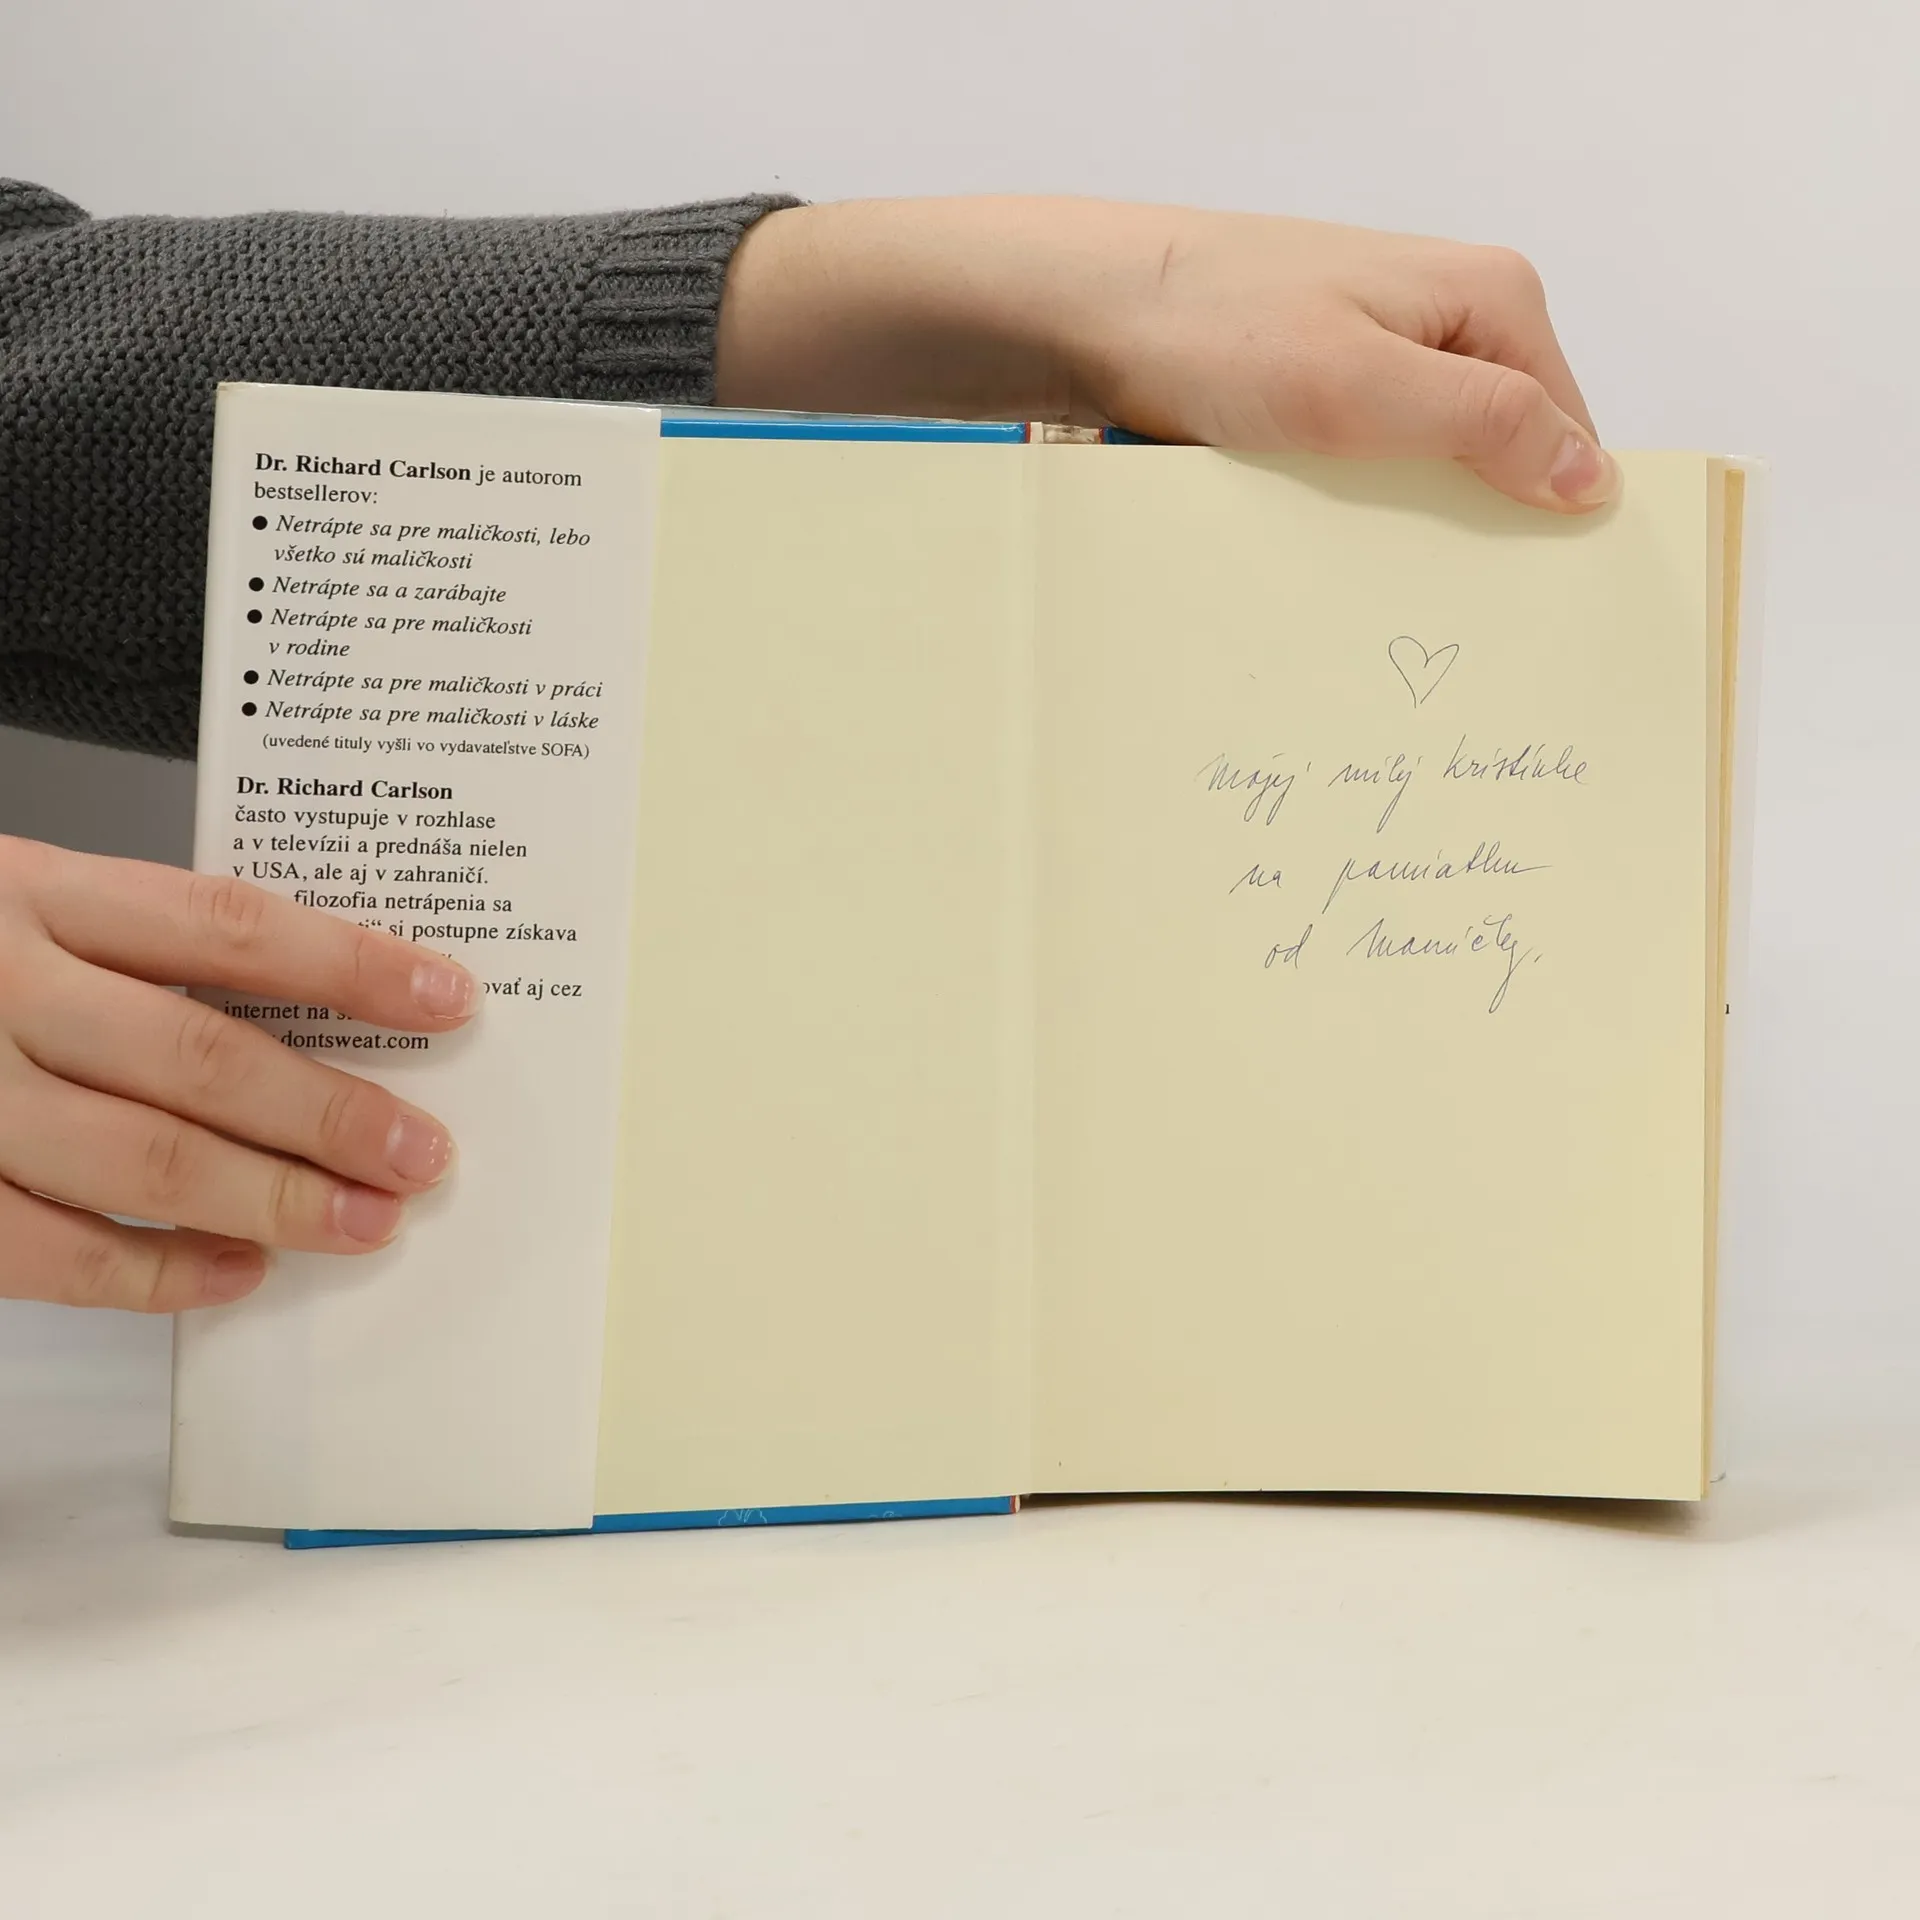 Dr. Richard Carlson je autorom
bestsellerov:
● Netrápte sa pre maličkosti, lebo
všetko sú maličkosti
● Netrápte sa a zarábajte
● Netrápte sa pre maličkosti
v rodine
● Netrápte sa pre maličkosti v práci
● Netrápte sa pre maličkosti v láske
(uvedené tituly vyšli vo vydavateľstve SOFA)
Dr. Richard Carlson
často vystupuje v rozhlase
a v televízii a prednáša nielen
v USA, ale aj v zahraničí.
filozofia netrápenia sa
si postupne získava
aj cez
internet na
dontsweat.com
Mojej milej Kristínke
na pamiatku
od Mamičky.